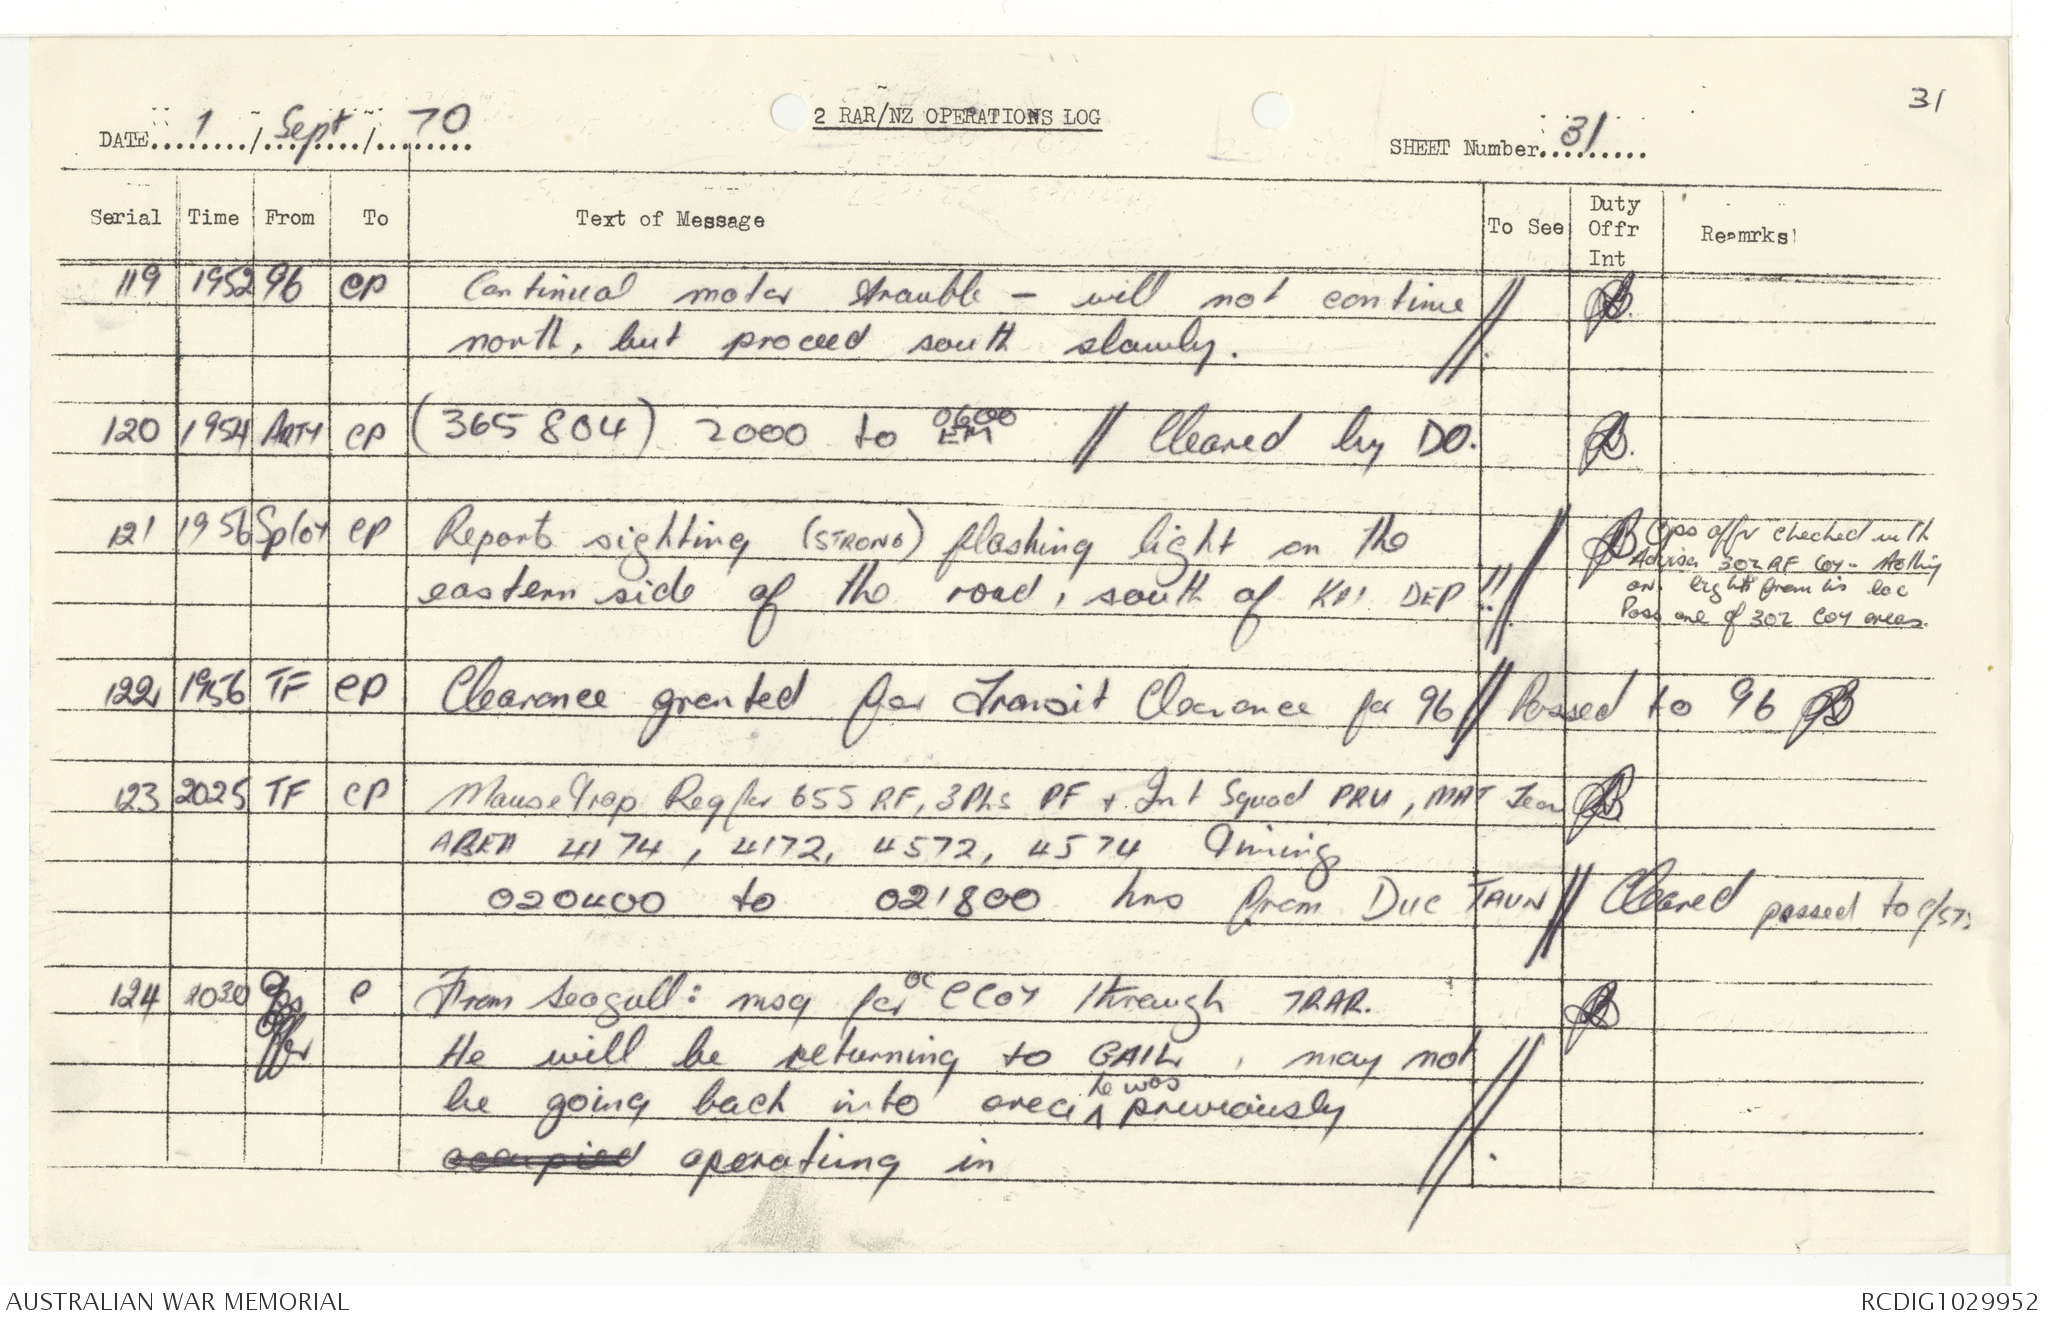 31
DATE 1 / Sept / 70
2 RAR/NZ OPERATIONS LOG
SHEET Number 31
Serial Time From To Text of Message To See Duty Offr Int Reamrks
119 1952 96 CP Continual motor trouble - will not continue
north, but proceed south slowly. //
120 1954 ARTY CP (365 804) 2000 to 0600 // Cleared by DO.
121 1956 Sp Coy CP Reports sighting (STRONG) flashing light on the
eastern side of the road, south of DEP !! //
Ops offr checked with
Adviser 302 RF Coy - Nothing
on lights from his loc
Poss one of 302 Coy areas.
122 1956 TF CP Clearance granted for Transit Clearance for 96 // Passed to 96
123 2025 TF CP Mousetrap Req for 655 RF, 3 Phs PF + Int Squad PRU, MAT Team
AREA 4174, 4172, 4572, 4574 Timing
020400 to 021800 hrs from Duc // Cleared passed to
124 2030 Ops Offr From Seagull: msg for OC C COY through 7RAR.
He will be returning to GAIL, may not
be going back into area he was previously
occupied operating in //
AUSTRALIAN WAR MEMORIAL
RCDIG1029952